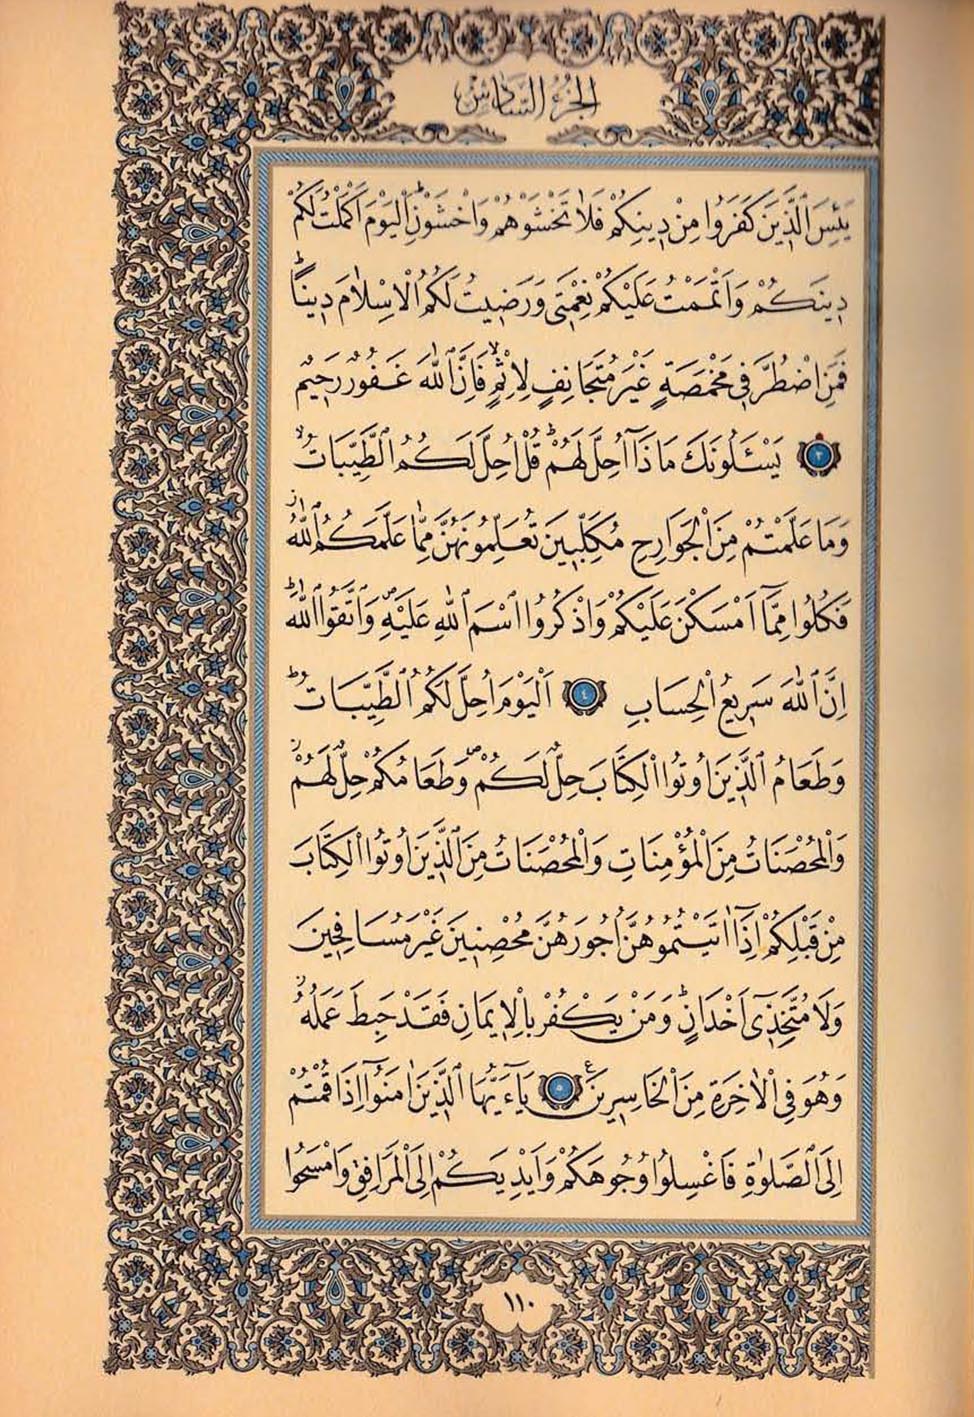 الجزء السادس
يَئِسَ الَّذِينَ كَفَرُوا مِنْ دِينِكُمْ فَلَا تَخْشَوْهُمْ وَاخْشَوْنِۜ اَلْيَوْمَ اَكْمَلْتُ لَكُمْ
دِينَكُمْ وَاَتْمَمْتُ عَلَيْكُمْ نِعْمَتِي وَرَضِيتُ لَكُمُ الْاِسْلَامَ دِينًاۜ
فَمَنِ اضْطُرَّ فِي مَخْمَصَةٍ غَيْرَ مُتَجَانِفٍ لِاِثْمٍۙ فَاِنَّ اللّٰهَ غَفُورٌ رَحِيمٌ
﴿٣﴾ يَسْـَٔلُونَكَ مَاذَٓا اُحِلَّ لَهُمْۜ قُلْ اُحِلَّ لَكُمُ الطَّيِّبَاتُۙ
وَمَا عَلَّمْتُمْ مِنَ الْجَوَارِحِ مُكَلِّبِينَ تُعَلِّمُونَهُنَّ مِمَّا عَلَّمَكُمُ اللّٰهُۘ
فَكُلُوا مِمَّٓا اَمْسَكْنَ عَلَيْكُمْ وَاذْكُرُوا اسْمَ اللّٰهِ عَلَيْهِۖ وَاتَّقُوا اللّٰهَۜ
اِنَّ اللّٰهَ سَرِيعُ الْحِسَابِ ﴿٤﴾ اَلْيَوْمَ اُحِلَّ لَكُمُ الطَّيِّبَاتُۜ
وَطَعَامُ الَّذِينَ اُوتُوا الْكِتَابَ حِلٌّ لَكُمْۖ وَطَعَامُكُمْ حِلٌّ لَهُمْۘ
وَالْمُحْصَنَاتُ مِنَ الْمُؤْمِنَاتِ وَالْمُحْصَنَاتُ مِنَ الَّذِينَ اُوتُوا الْكِتَابَ
مِنْ قَبْلِكُمْ اِذَٓا اٰتَيْتُمُوهُنَّ اُجُورَهُنَّ مُحْصِنِينَ غَيْرَ مُسَافِحِينَ
وَلَا مُتَّخِذِٓي اَخْدَانٍۜ وَمَنْ يَكْفُرْ بِالْاِيمَانِ فَقَدْ حَبِطَ عَمَلُهُۘ
وَهُوَ فِي الْاٰخِرَةِ مِنَ الْخَاسِرِينَ ﴿٥﴾ يَٓا اَيُّهَا الَّذِينَ اٰمَنُٓوا اِذَا قُمْتُمْ
اِلَى الصَّلٰوةِ فَاغْسِلُوا وُجُوهَكُمْ وَاَيْدِيَكُمْ اِلَى الْمَرَافِقِ وَامْسَحُوا
١١٠